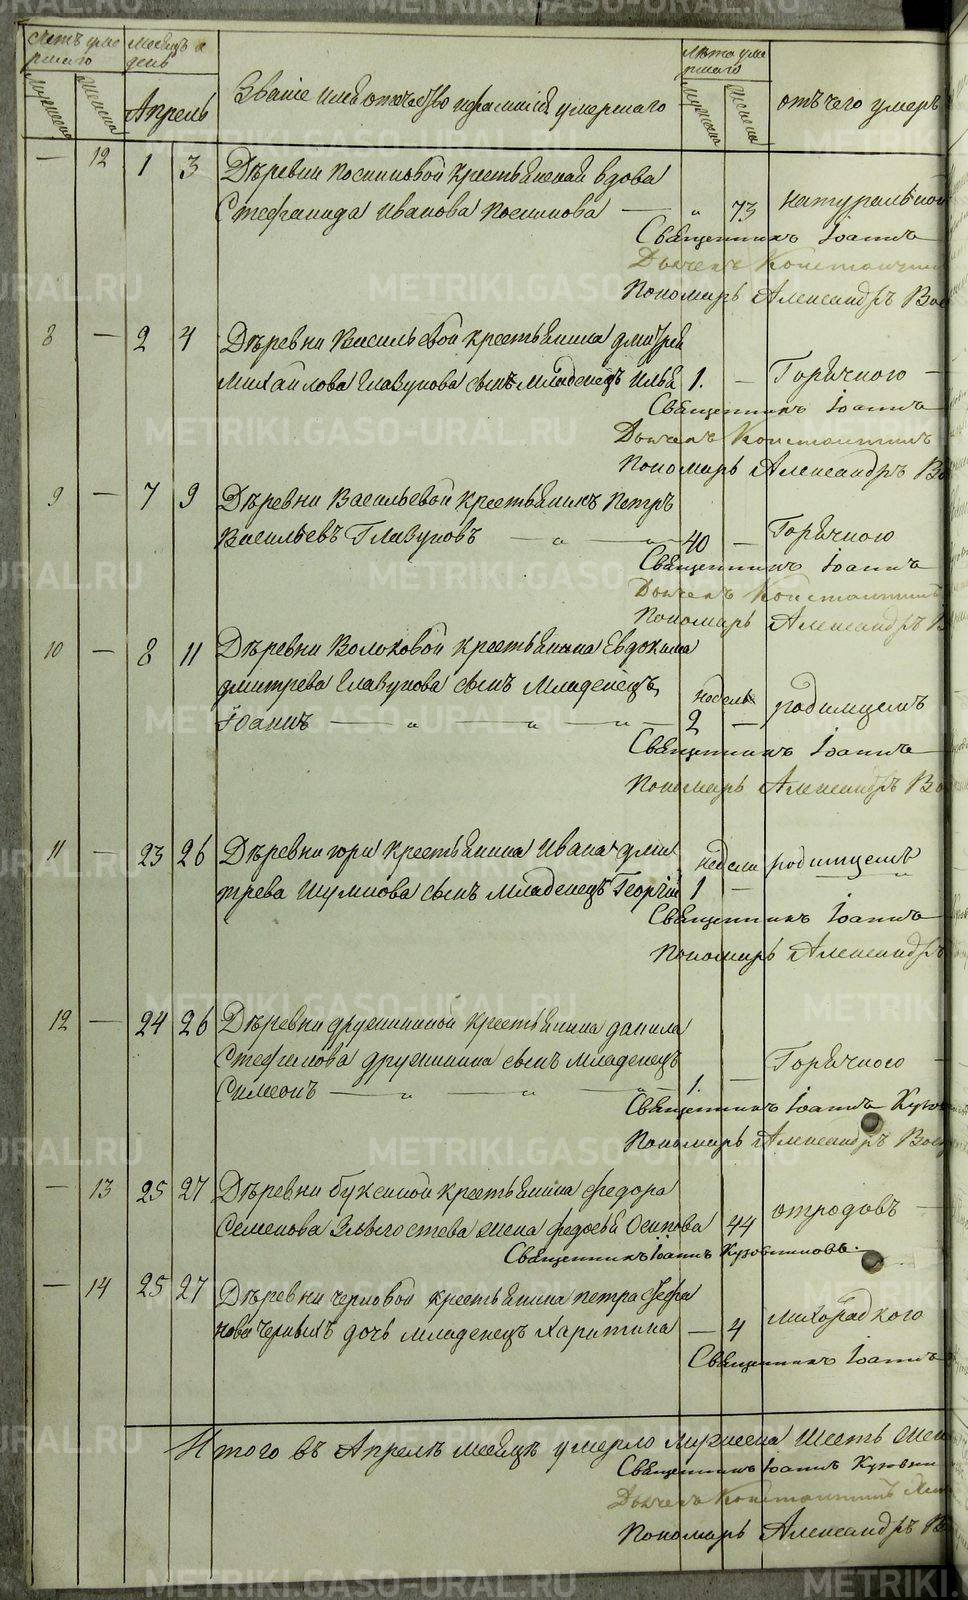 умершаго
Месяцъ и день
Лѣта умершаго
Мужеска
Женска
Апрель
Званіе имя отчество и фамилія умершаго
Мужеска
Женска
отъ чего умеръ
— 12 1 3 Дѣревни крестьянская вдова
Стефанида Иванова — „ 73 натуральной
Священникъ Іоаннъ
Дьячекъ Константинъ
Пономарь Александръ
8 — 2 4 Дѣревни Васильевой крестьянина Дмитрия
Михайлова Главунова сынъ младенецъ Илья 1. — Горячного —
Священникъ Іоаннъ
Дьячекъ Константинъ
Пономарь Александръ
9 — 7 9 Дѣревни Васильевой крестьянинъ Петръ
Васильевъ Главуновъ — „ — „ 40 — Горячного
Священникъ Іоаннъ
Дьячекъ Константинъ
Пономарь Александръ
10 — 8 11 Дѣревни Волоковой крестьянина Евдокима
Дмитрева Главунова сынъ младенецъ недель родимцемъ
Іоаннъ — „ — „ — „ — 2 —
Священникъ Іоаннъ
Пономарь Александръ
11 — 23 26 Дѣревни горы крестьянина Ивана Дми
трева сынъ младенецъ Георгій недели 1 — родимцемъ
Священникъ Іоаннъ
Пономарь Александръ
12 — 24 26 Дѣревни Дружининой крестьянина Данила
Стефанова Дружинина сынъ младенецъ
Симеонъ — „ — „ — „ 1. — Горячного —
Священникъ Іоаннъ
Пономарь Александръ
— 13 25 27 Дѣревни крестьянина Федора
Семенова жена Федосья Осипова 44 отродовъ —
Священникъ Іоаннъ Кузовниковъ.
— 14 25 27 Дѣревни Черновой крестьянина Петра Стефа
нова дочь младенецъ Харитина — 4
Священникъ Іоаннъ
Итого въ Апрелѣ месяцѣ умерло мужеска шесть
Священникъ Іоаннъ
Дьячекъ Константинъ
Пономарь Александръ
METRIKI.GASO-URAL.RU